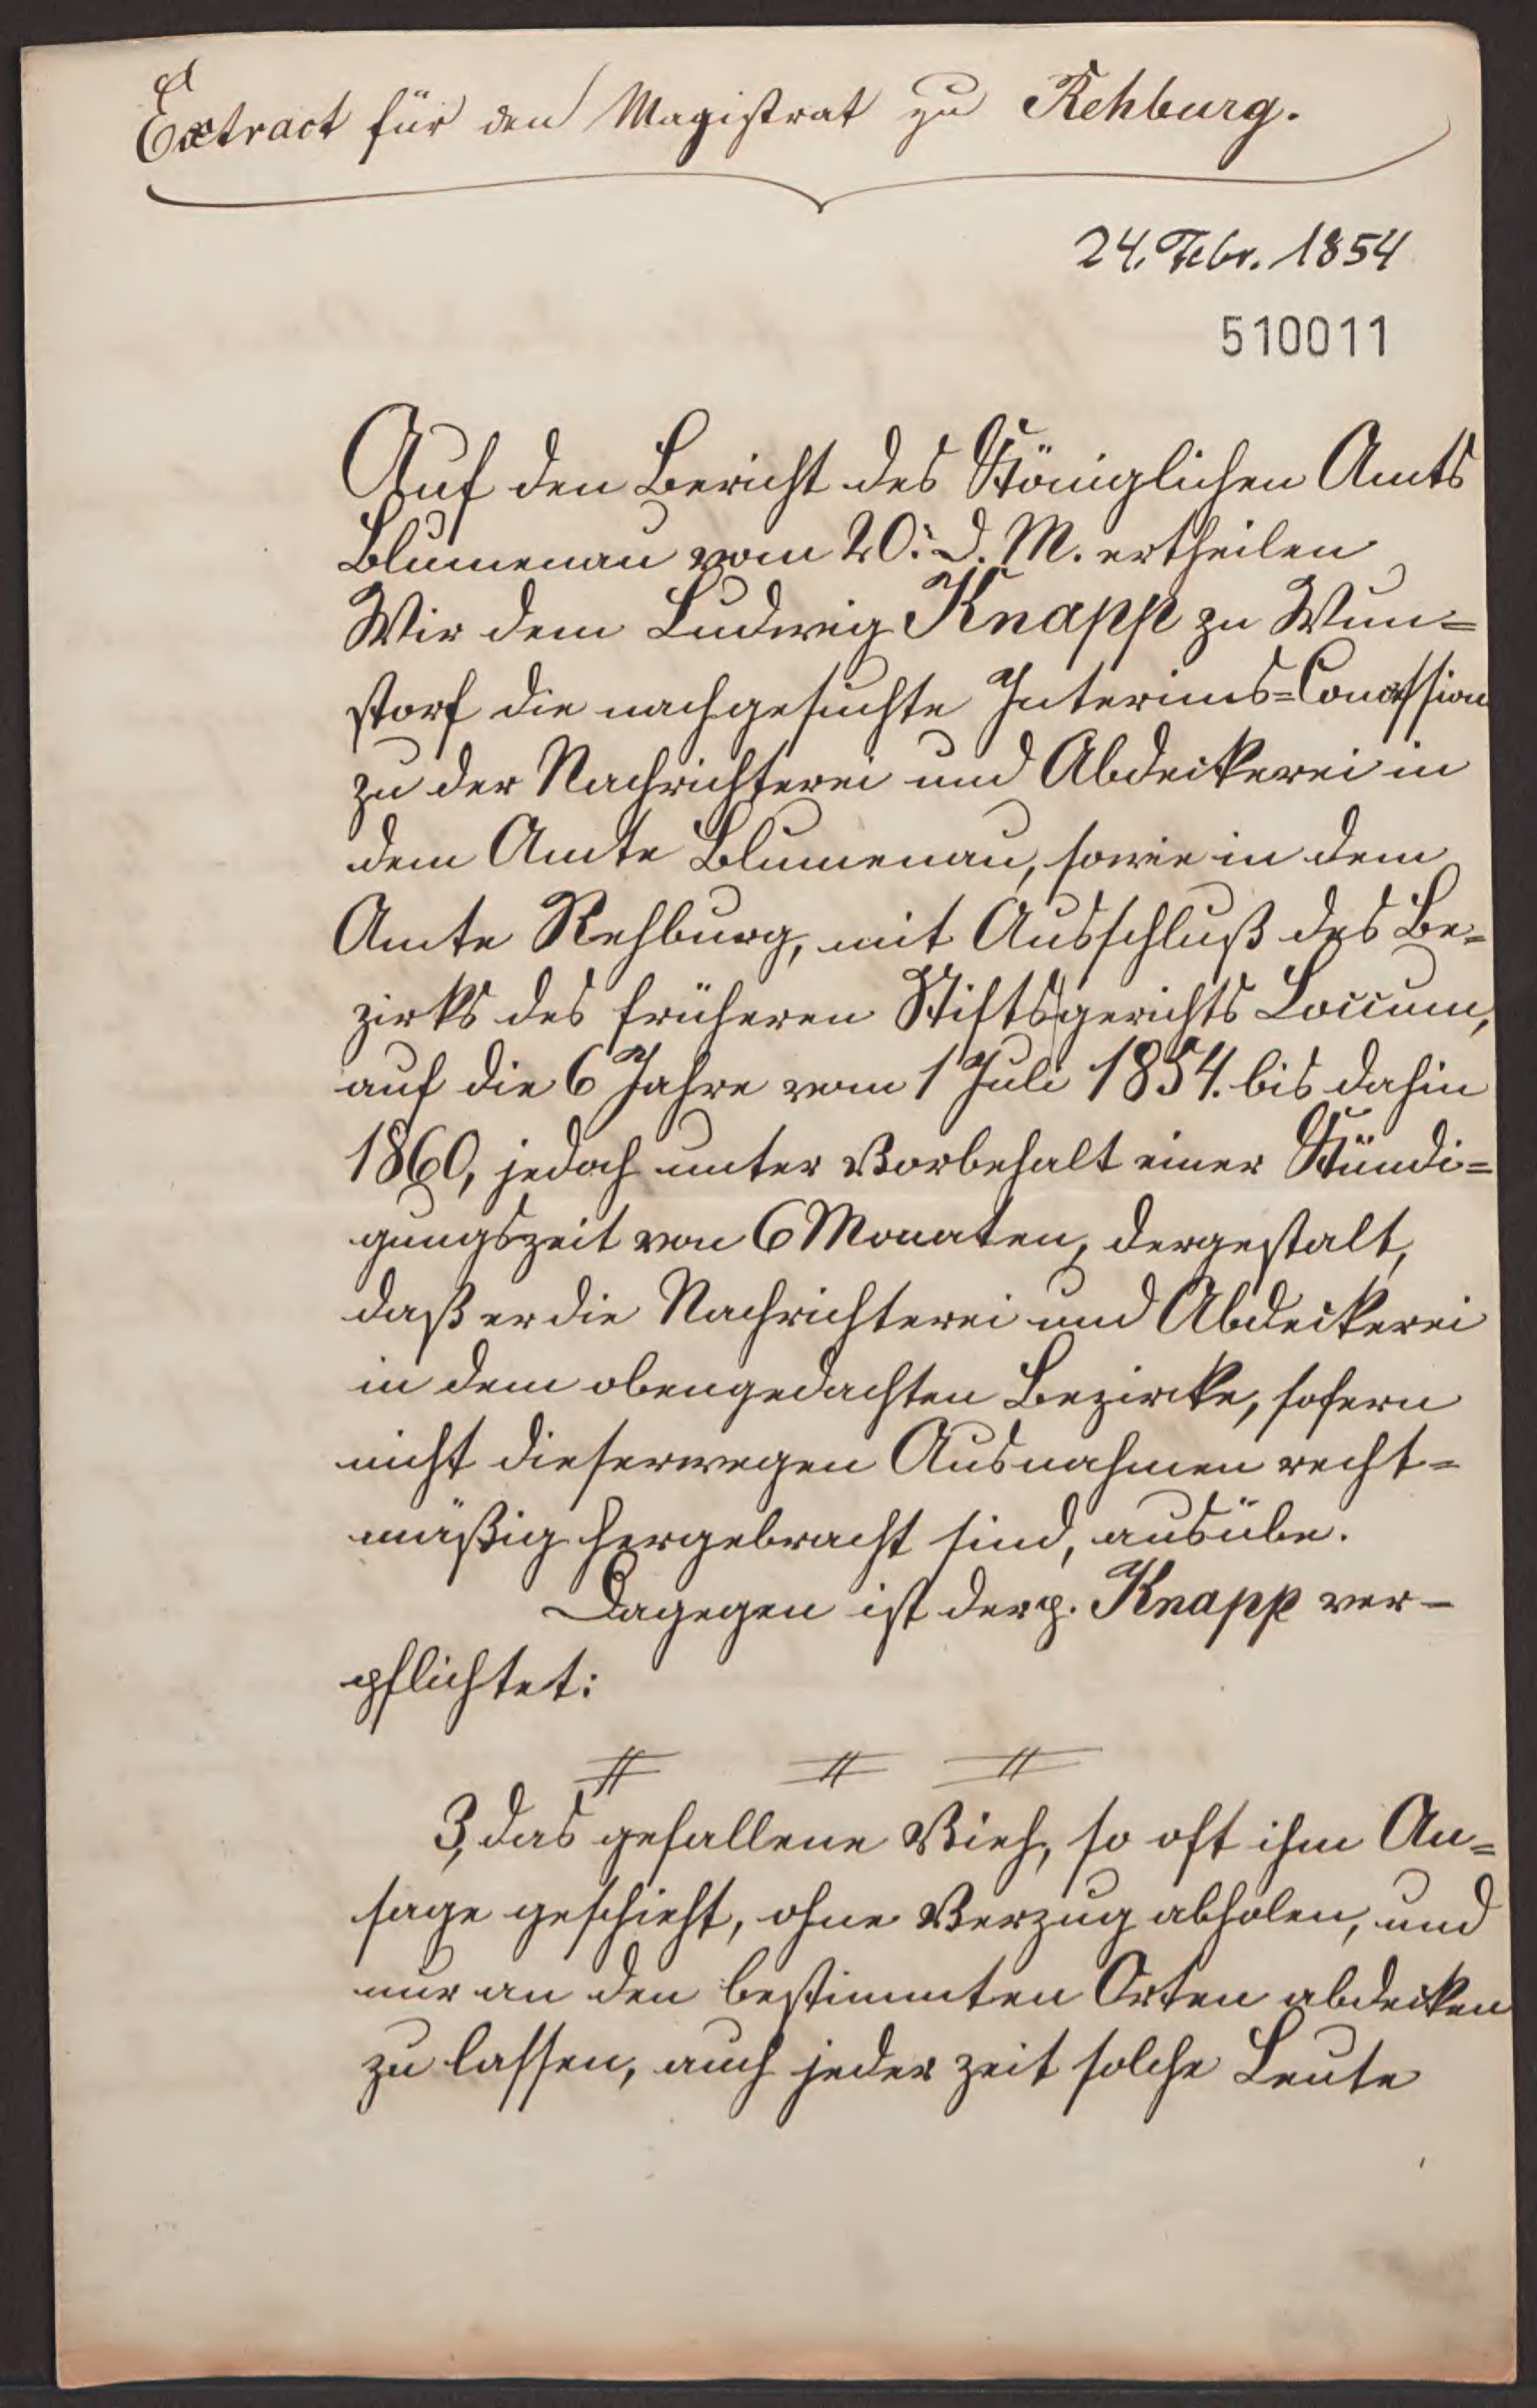 Extract für den Magistrat zu Rehburg.
24. Febr. 1854
510011
Auf den Bericht des Königlichen Amts
Blumenau vom 20. d. M. ertheilen
Wir dem Ludwig Knapp zu Wun=
storf die nachgesuchte Interims=Concession
zu der Nachrichterei und Abdeckerei in
dem Amte Blumenau, sowie in dem
Amte Rehburg, mit Ausschluß des Be=
zirks des früheren Stiftsgerichts Loccum,
auf die 6 Jahre vom 1 Juli 1854. bis dahin
1860, jedoch unter Vorbehalt einer Kündi=
gungszeit von 6 Monaten, dergestalt,
daß er die Nachrichterei und Abdeckerei
in dem obengedachten Bezirke, sofern
nicht dieserwegen Ausnahmen recht=
mäßig hergebracht sind, ausübe.
Dagegen ist der p. Knapp ver-
pflichtet:
3, das gefallene Vieh, so oft ihm An=
sage geschieht, ohne Verzug abholen, und
nur an den bestimmten Orten abdecken
zu lassen, auch jeder zeit solche Leute